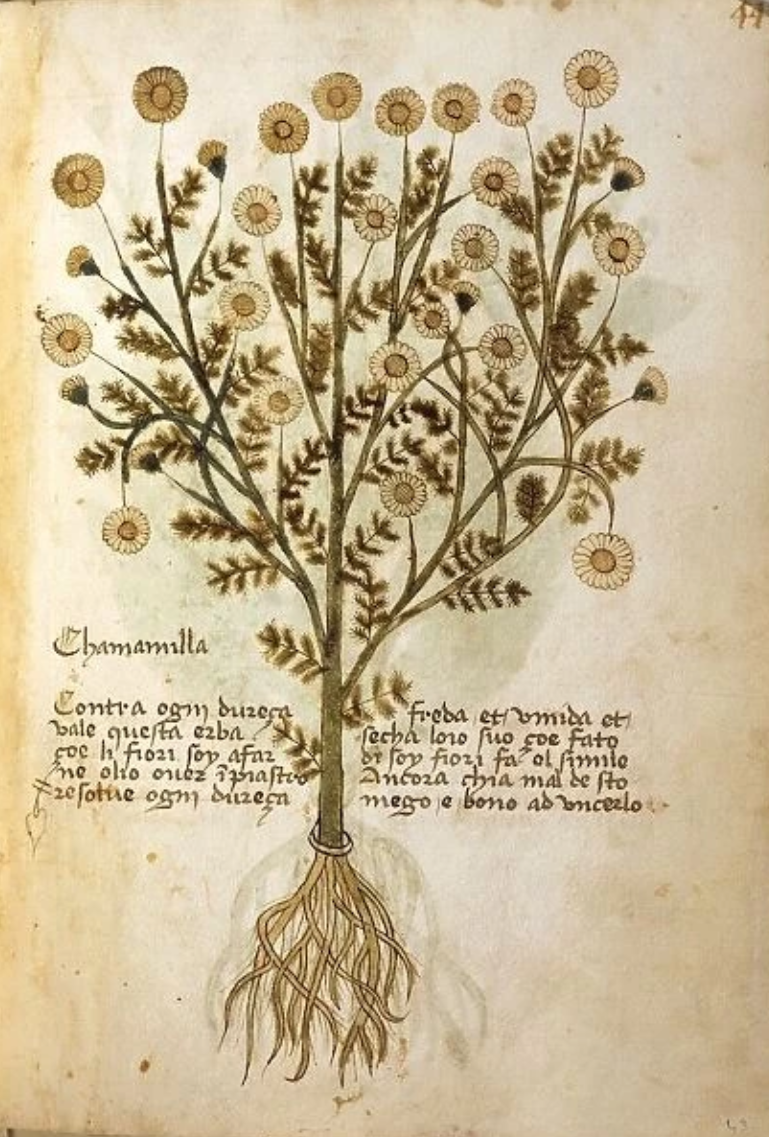 44
Chamamilla
Contra ogni dureça
vale questa erba
çoe li fiori soy afar
ne olio over īpiastro
resolve ogni dureça
freda et vmida et
secha loio suo çoe fato
di soy fiori fa el simile
Ancora chia mal de sto
mego e bono ad vncerlo
43